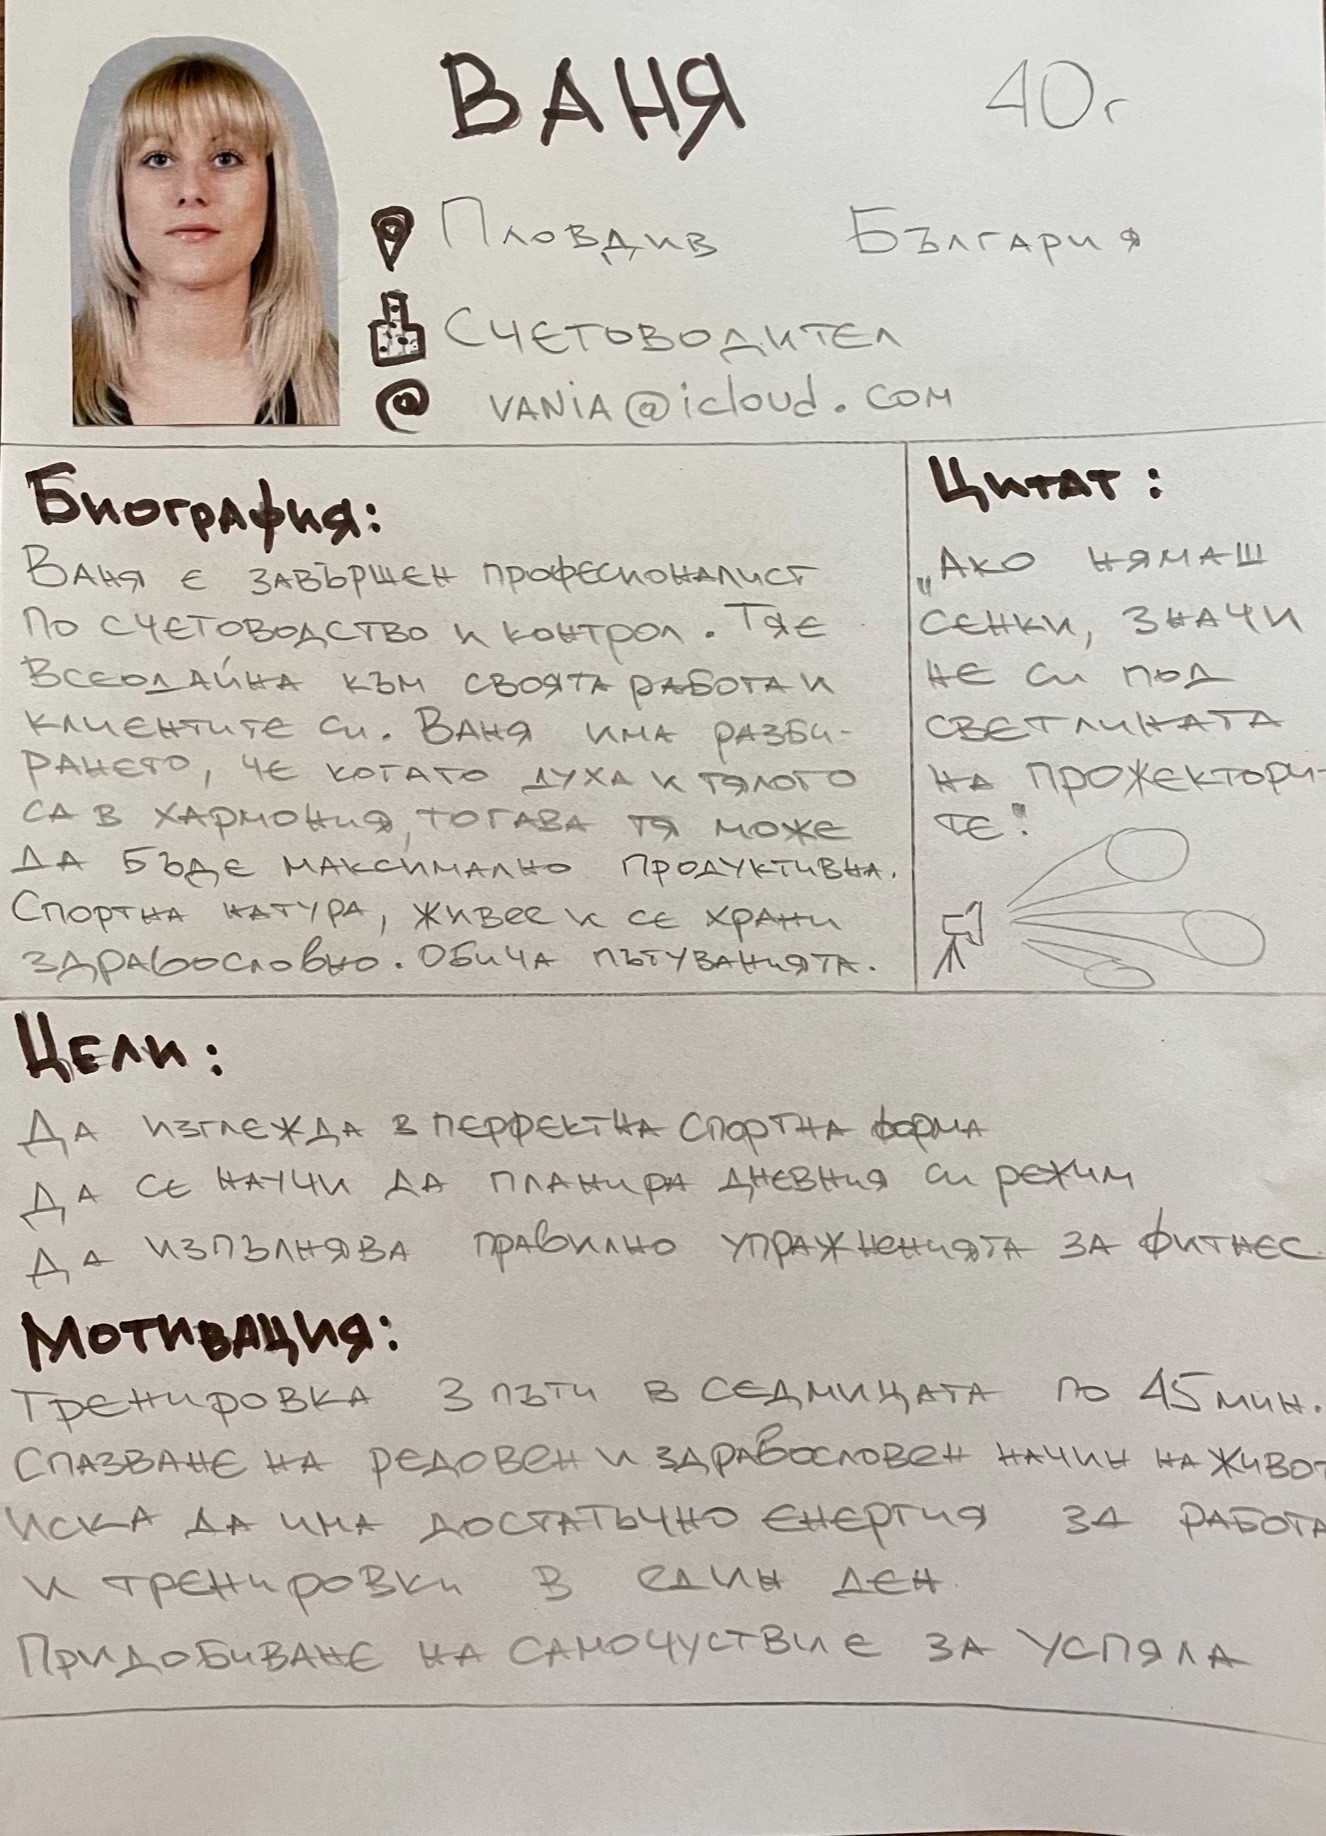 ВАНЯ 40г
Пловдив България
Счетоводител
@ vania@icloud.com
Биография:
Ваня е завършен професионалист
по счетоводство и контрол. Тя е
всеодайна към своята работа и
клиентите си. Ваня има разби-
рането, че когато духа и тялото
са в хармония, тогава тя може
да бъде максимално продуктивна.
Спортна натура, живее и се храни
здравословно. Обича пътуванията.
Цитат:
„Ако нямаш
сенки, значи
не си под
светлината
на прожектори-
те"
Цели:
Да изглежда в перфектна спортна форма
Да се научи да планира дневния си режим
Да изпълнява правилно упражненията за фитнес
Мотивация:
Тренировка 3 пъти в седмицата по 45 мин.
Спазване на редовен и здравословен начин на живот
Иска да има достатъчно енергия за работа
и тренировки в един ден
Придобиване на самочуствие за успяла